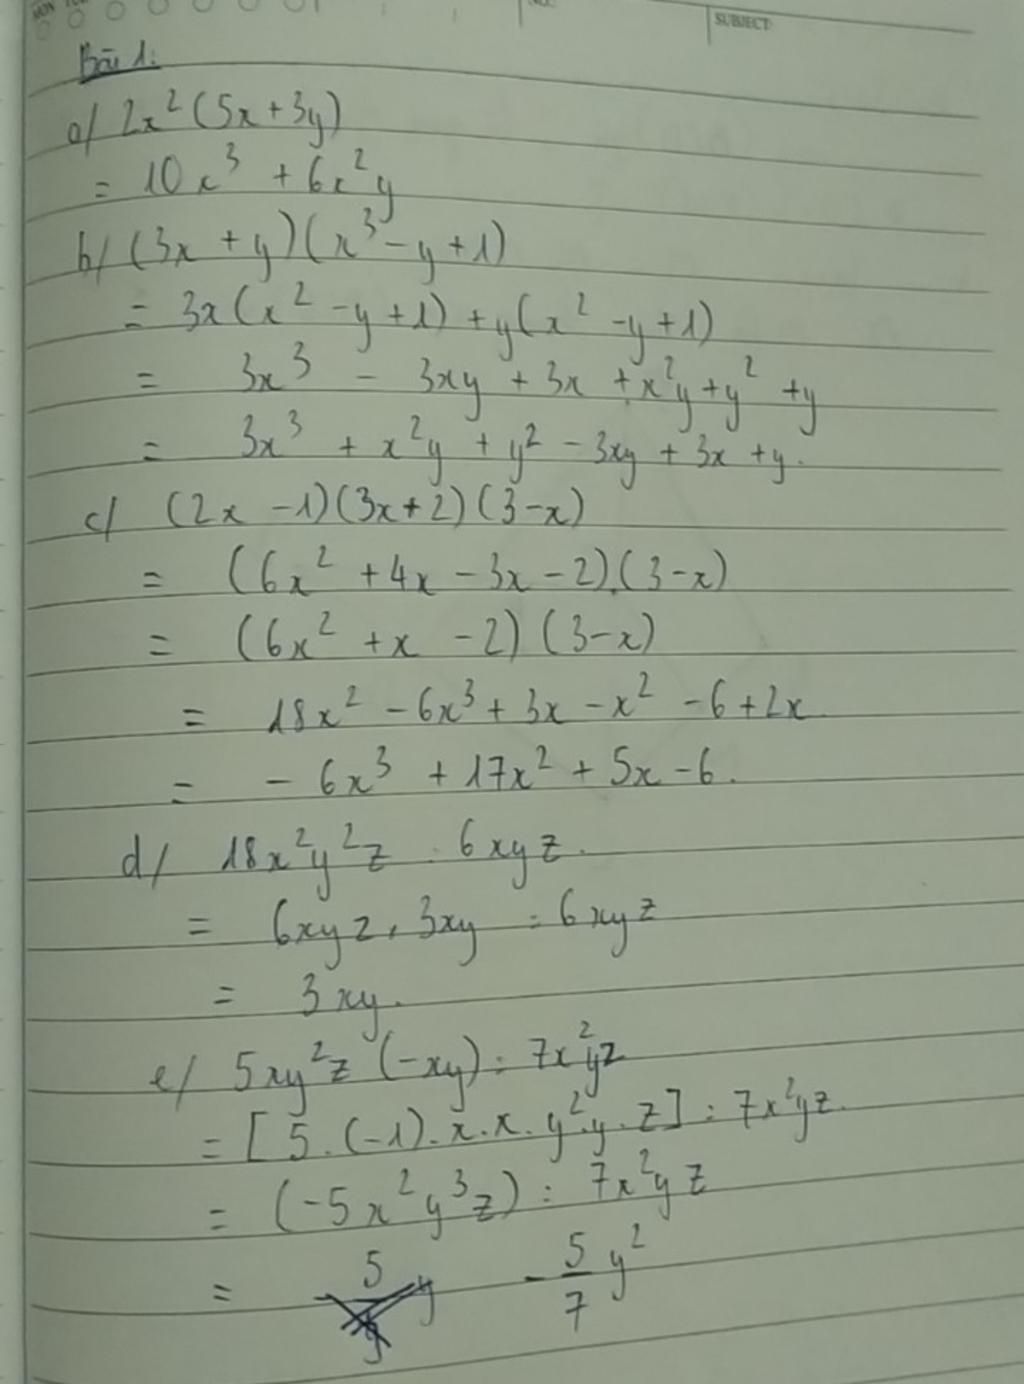 SUBJECT:
Bài 1:
a/ 2x²(5x+3y)
= 10x³ + 6x²y
b/ (3x + y)(x³ - y + 1)
= 3x(x² - y + 1) + y(x² - y + 1)
= 3x³ - 3xy + 3x + x²y + y² + y
= 3x³ + x²y + y² - 3xy + 3x + y.
c/ (2x - 1)(3x+2)(3-x)
= (6x² + 4x - 3x - 2).(3-x)
= (6x² + x - 2)(3-x)
= 18x² - 6x³ + 3x - x² - 6 + 2x
= - 6x³ + 17x² + 5x - 6.
d/ 18x²y²z : 6xyz.
= 6xyz . 3xy : 6xyz
= 3xy.
e/ 5xy²z (-xy) : 7x²yz
= [5.(-1).x.x.y².y.z] : 7x²yz.
= (-5x²y³z) : 7x²yz
= - 5/7 y²